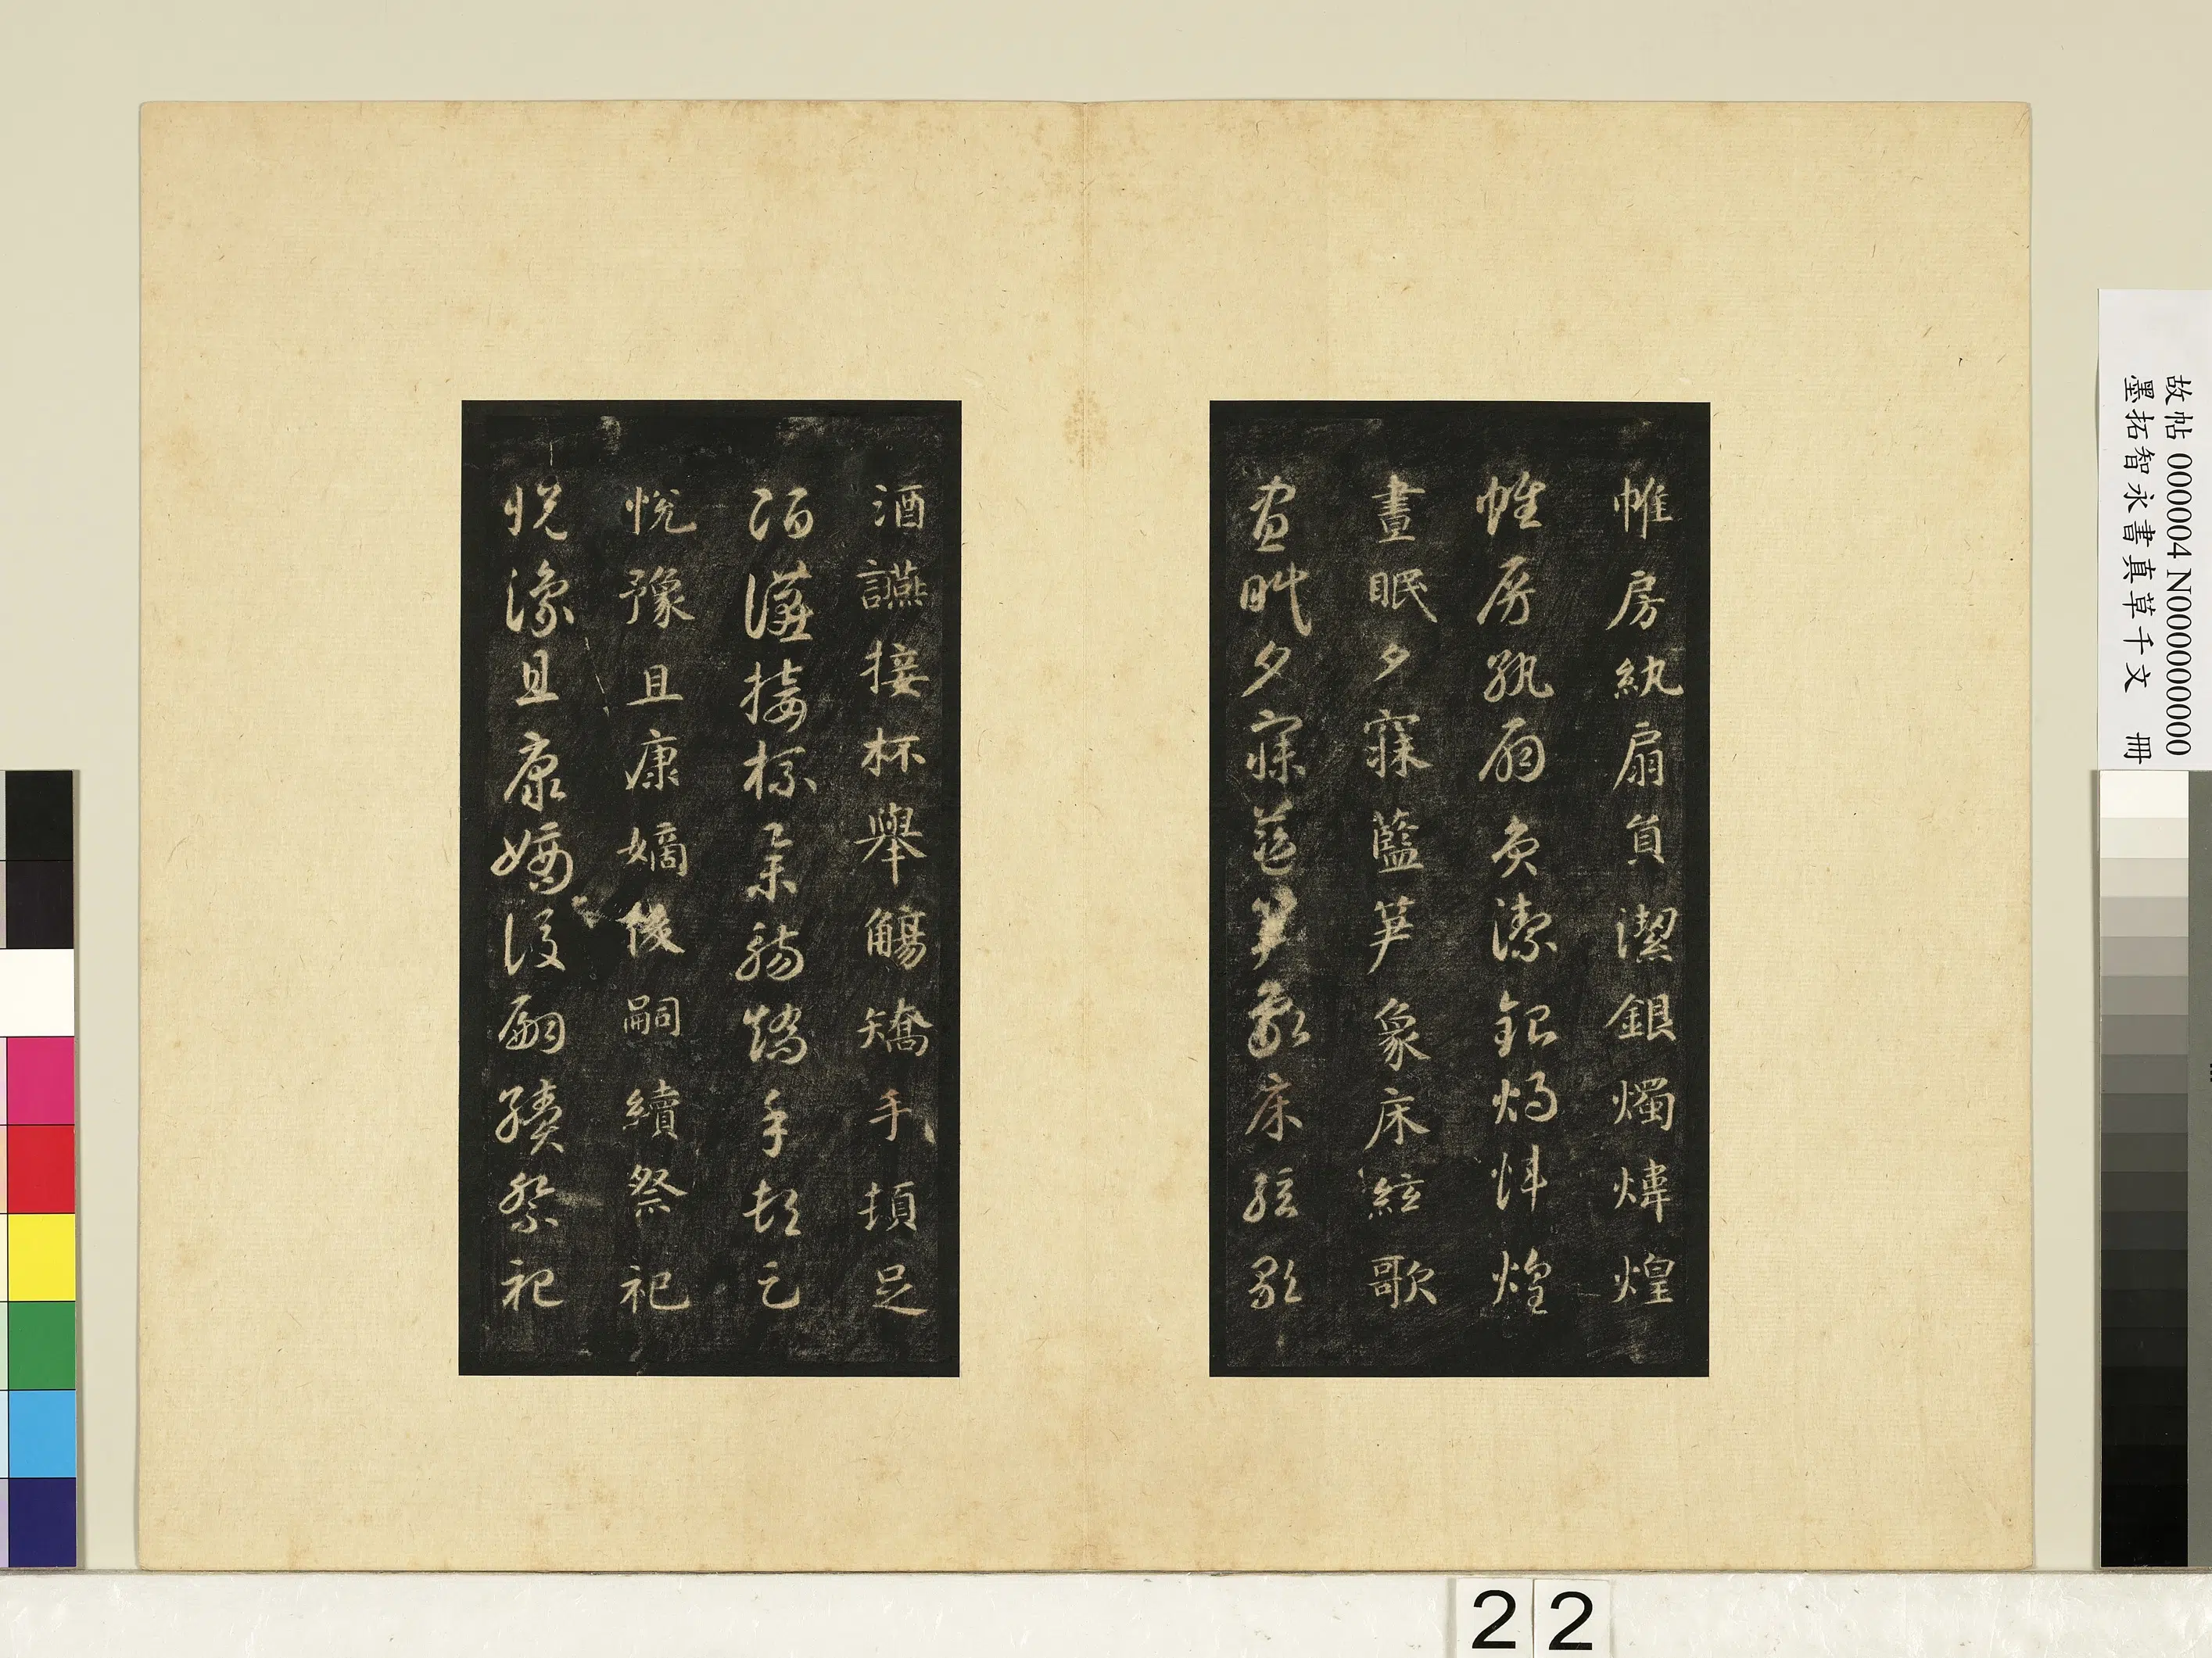 帷房紈扇員潔銀燭煒煌
帷房紈扇員潔銀燭煒煌
晝眠夕寐藍笋象床絃歌
晝眠夕寐藍笋象床絃歌
酒讌接杯舉觴矯手頓足
酒讌接杯舉觴矯手頓足
悅豫且康嫡後嗣續祭祀
悅豫且康嫡後嗣續祭祀
故帖 000004 N000000000
墨拓智永書真草千文 冊
22